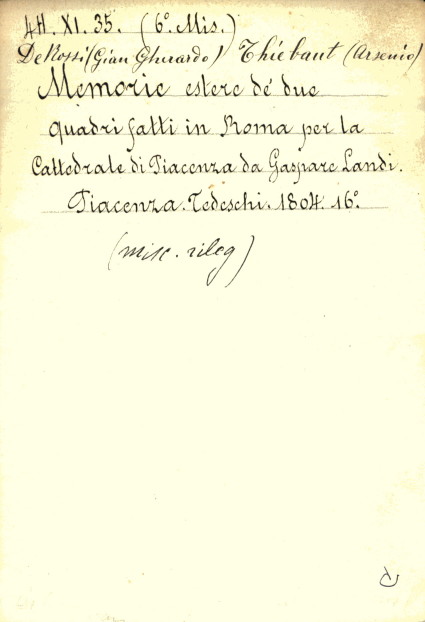 4H. XI. 35. (6º. Mis.)
De Rossi (Gian Gherardo) Thiebaut (Arsenio)
Memorie estere de' due
quadri fatti in Roma per la
Cattedrale di Piacenza da Gaspare Landi.
Piacenza. Tedeschi. 1804. 16º.
(misc. rileg)